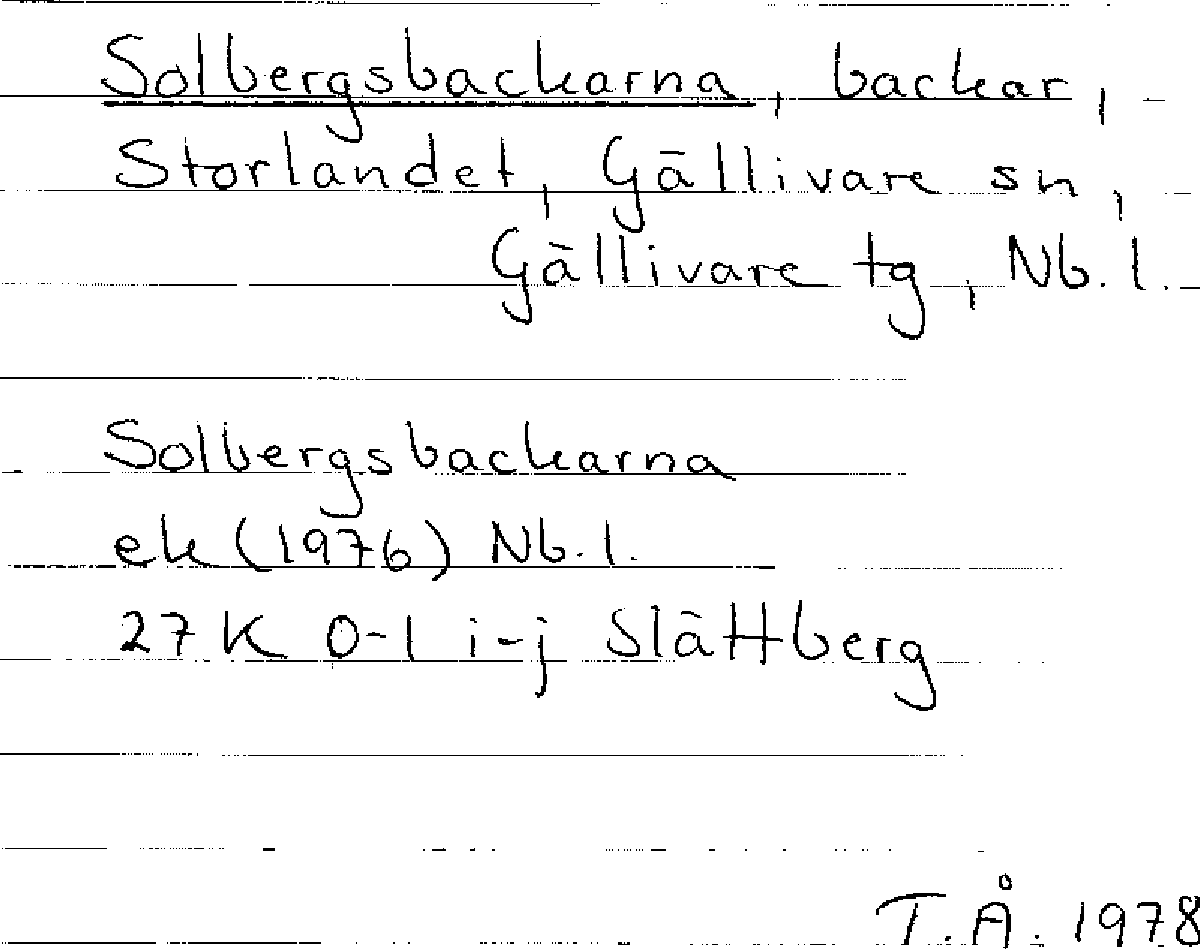 Solbergsbackarna, backar,
Storlandet, Gällivare sn,
Gällivare tg, Nb. l.
Solbergsbackarna
ek (1976) Nb. l.
27 K 0-1 i-j Slättberg
T.Å. 1978